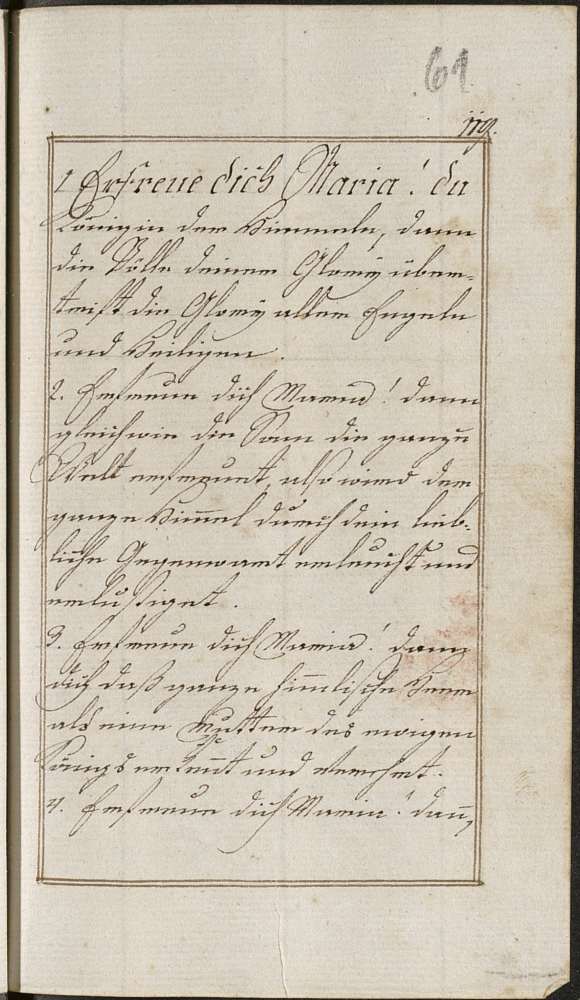 61
119.
1 Erfreue dich Maria! du
Königin der Himmeln, dann
die Völle deiner Glory über-
treift die Glory aller Engeln
und Heiligen.
2. Erfreue dich Maria! dann
gleichwie die Son die ganze
Welt erfreuet, also wird der
ganze Himel durch dein lieb-
liche Gegenwart erleucht und
erlustiget.
3. Erfreue dich Maria! dann
dich daß ganze himlische Heer
als eine Mutter des ewigen
Königs erkent und verehret.
4. Erfreue dich Maria! dan,